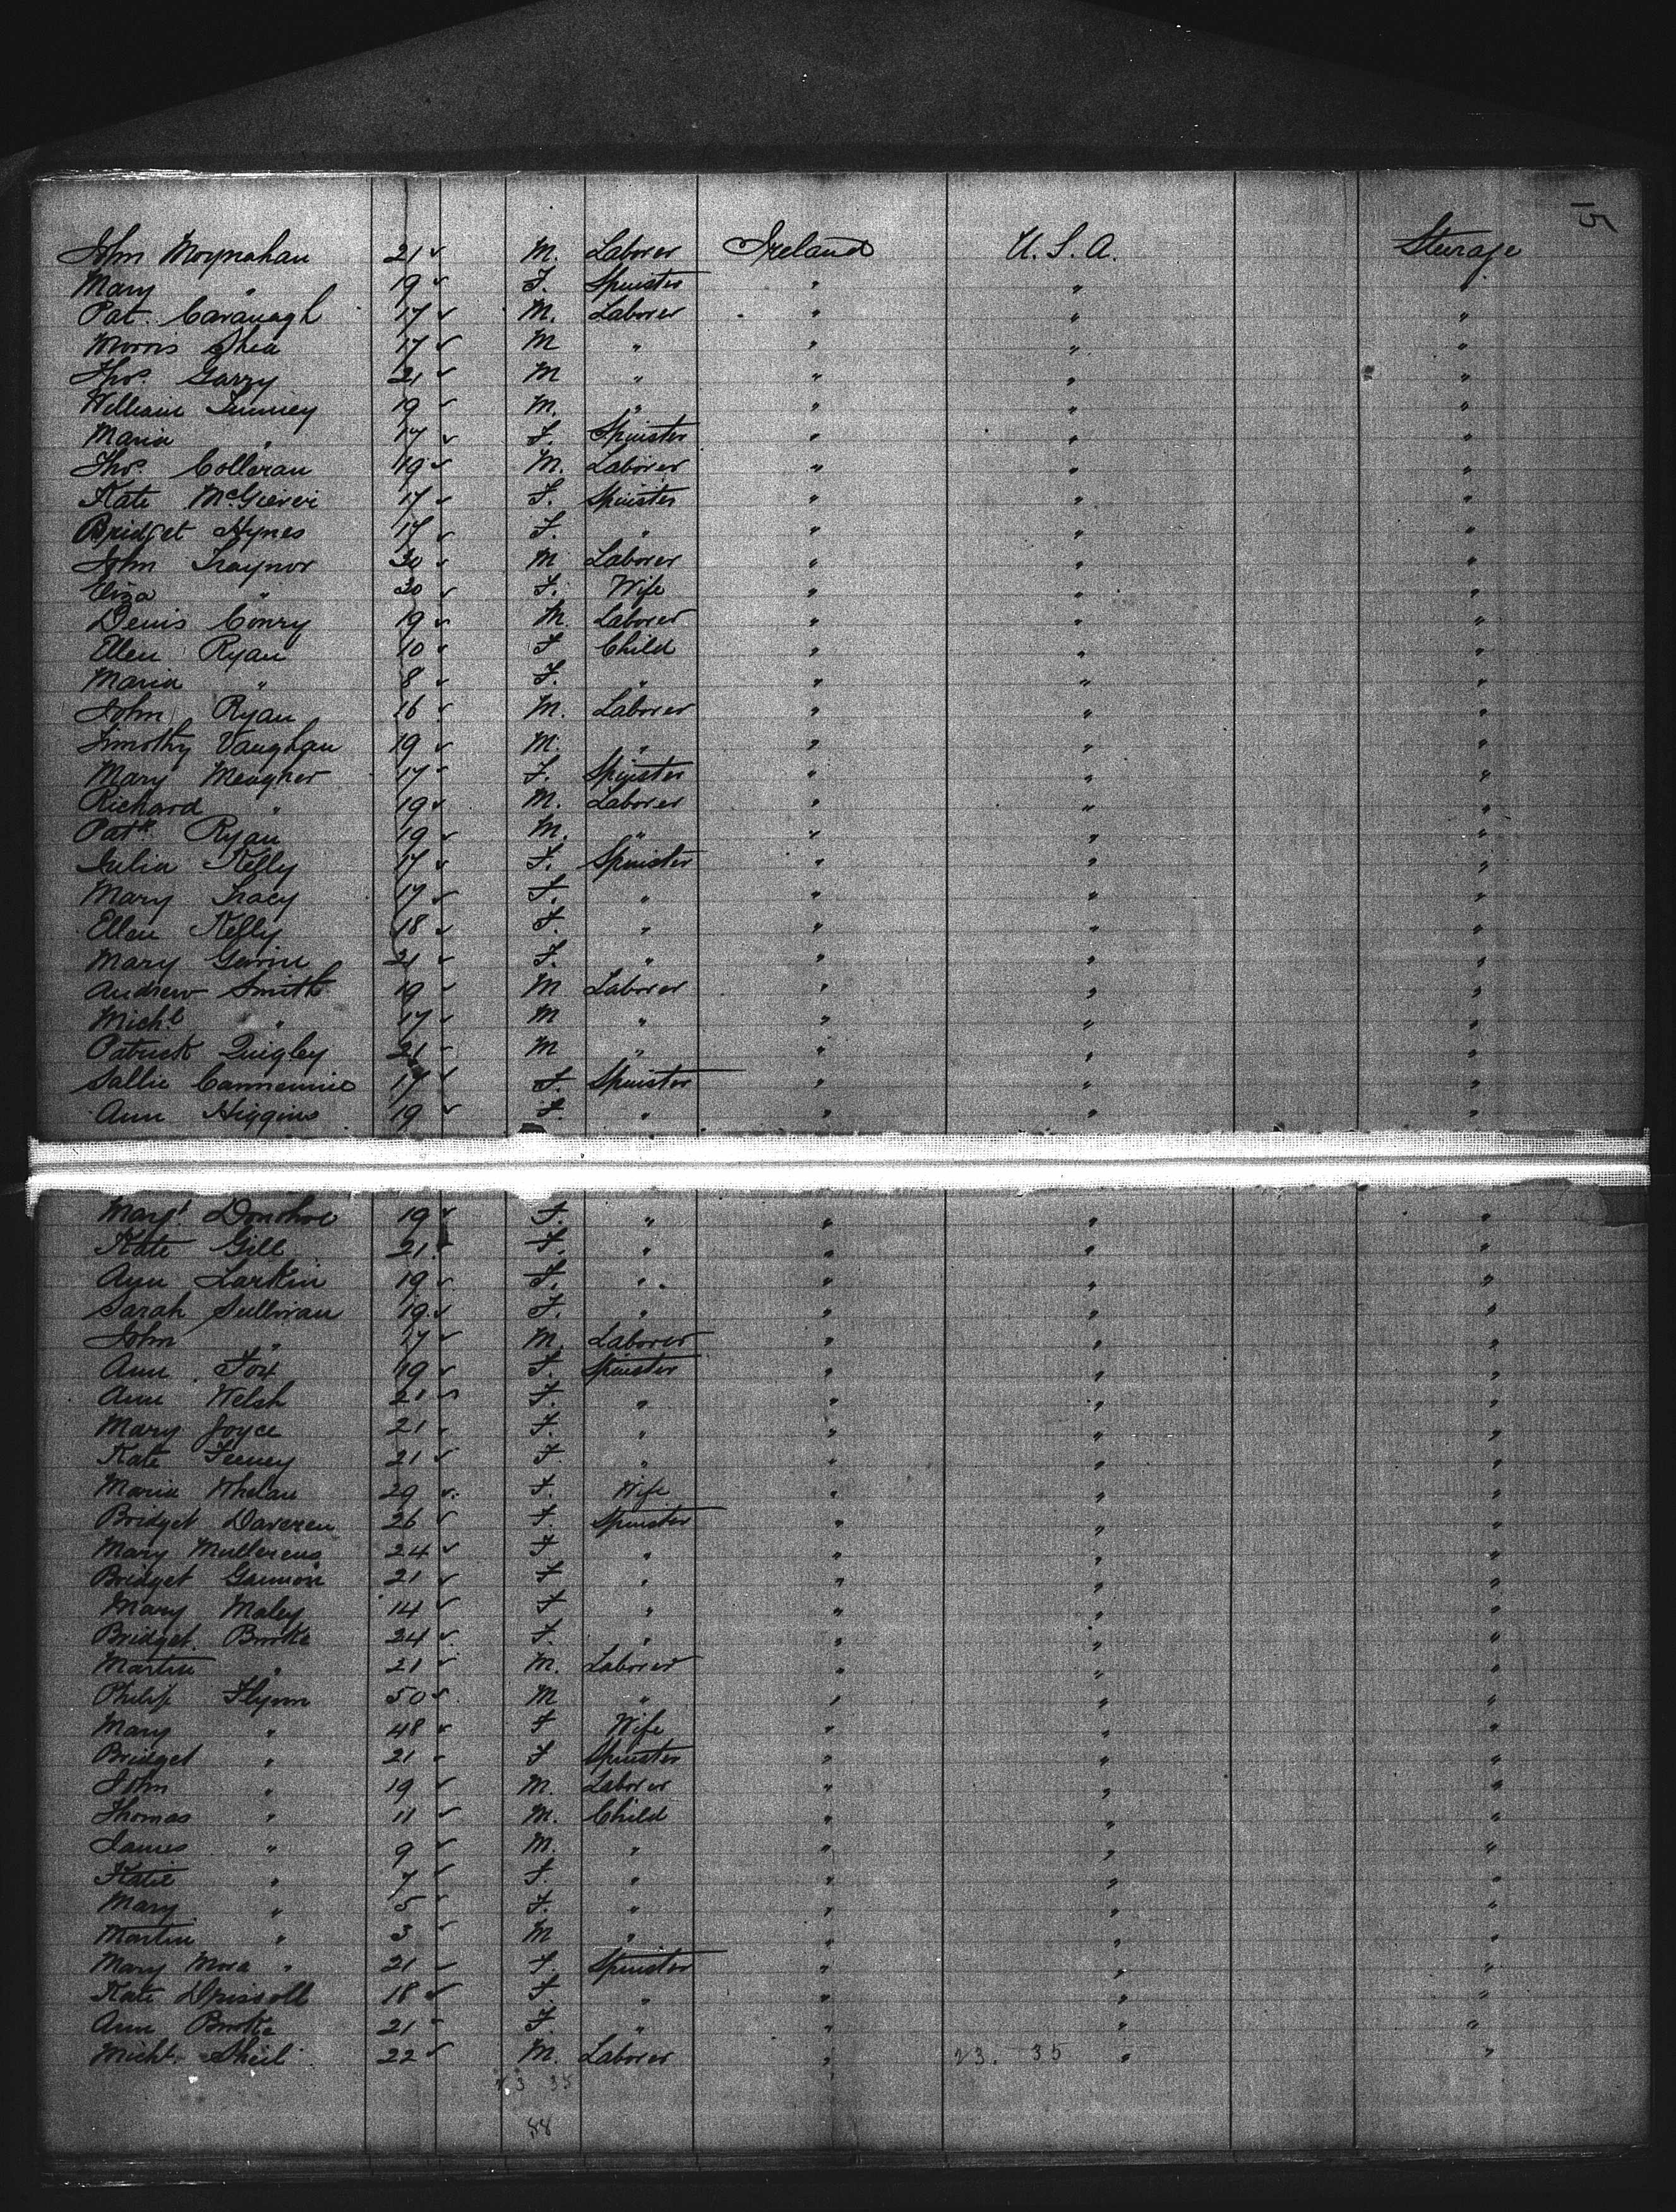 15
John Moynahan 21 M. Laborer Ireland U.S.A. Steerage
Mary " 19 F. Spinster " " "
Pat. Cavanagh 17 M. Laborer " " "
Morris Shea 17 M " " " "
Thos. Garry 21 M " " " "
William 19 M. " " " "
Maria " 17 F. Spinster " " "
Thos. Colleran 19 M. Laborer " " "
Kate 17 F. Spinster " " "
Bridget Hynes 17 F. " " " "
John Traynor 30 M Laborer " " "
Eliza " 30 F. Wife " " "
Denis Conry 19 M. Laborer " " "
Ellen Ryan 10 F Child " " "
Maria " 8 F. " " " "
John Ryan 16 M. Laborer " " "
Timothy Vaughan 19 M. " " " "
Mary Meagher 17 F. Spinster " " "
Richard " 19 M. Laborer " " "
Patk Ryan 19 M. " " " "
Julia Kelly 17 F. Spinster " " "
Mary Tracy 17 F. " " " "
Ellen Kelly 18 F. " " " "
Mary 21 F. " " " "
Andrew Smith 19 M Laborer " " "
Michl " 17 M " " " "
Patrick Quigley 21 M " " " "
Sallie 17 F. Spinster " " "
Ann Higgins 19 F. " " " "
Margt. Donohoe 19 F. " " " "
Kate Gill 21 F. " " " "
Ann Larkin 19 F. " " " "
Sarah Sullivan 19 F. " " " "
John " 17 M. Laborer " " "
Ann Fox 19 F. Spinster " " "
Ann Welsh 21 F. " " " "
Mary Joyce 21 F. " " " "
Kate Feeney 21 F. " " " "
Maria Whelan 29 F. Wife " " "
Bridget Daveren 26 F. Spinster " " "
Mary 24 F " " " "
Bridget Gannon 21 F " " " "
Mary Maley 14 F " " " "
Bridget Burke 24 F. " " " "
Martin " 21 M. Laborer " " "
Philip Flynn 50 M " " " "
Mary " 48 F Wife " " "
Bridget " 21 F Spinster " " "
John " 19 M. Laborer " " "
Thomas " 11 M. Child " " "
James " 9 M. " " " "
Katie " 7 F. " " " "
Mary " 5 F. " " " "
Martin " 3 M " " " "
Mary Mora " 21 F. Spinster " " "
Kate Driscoll 18 F. " " " "
Ann Burke 21 F. " " " "
Michl. Sheil 22 M. Laborer " 23. 35 " "
23 35
88